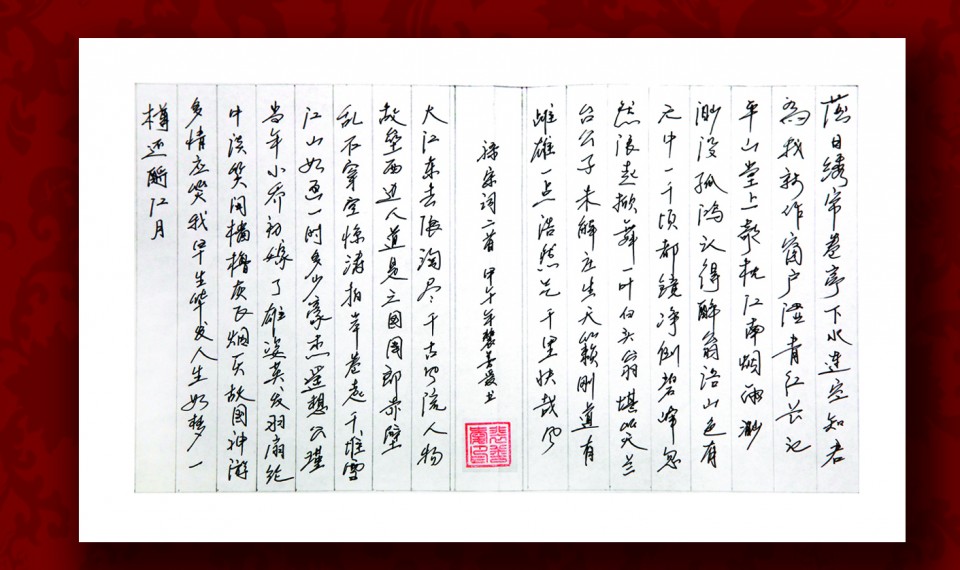 落日绣帘卷亭下水连空知君
为我新作窗户湿青红长记
平山堂上欹枕江南烟雨渺
渺没孤鸿认得醉翁语山色有
无中一千顷都镜净倒碧峰忽
然浪起掀舞一叶白头翁堪笑兰
台公子未解庄生天籁刚道有
雌雄一点浩然气千里快哉风
录宋词二首 甲午年
大江东去浪淘尽千古风流人物
故垒西边人道是三国周郎赤壁
乱石穿空惊涛拍岸卷起千堆雪
江山如画一时多少豪杰遥想公瑾
当年小乔初嫁了雄姿英发羽扇纶
巾谈笑间樯橹灰飞烟灭故国神游
多情应笑我早生华发人生如梦一
樽还酹江月